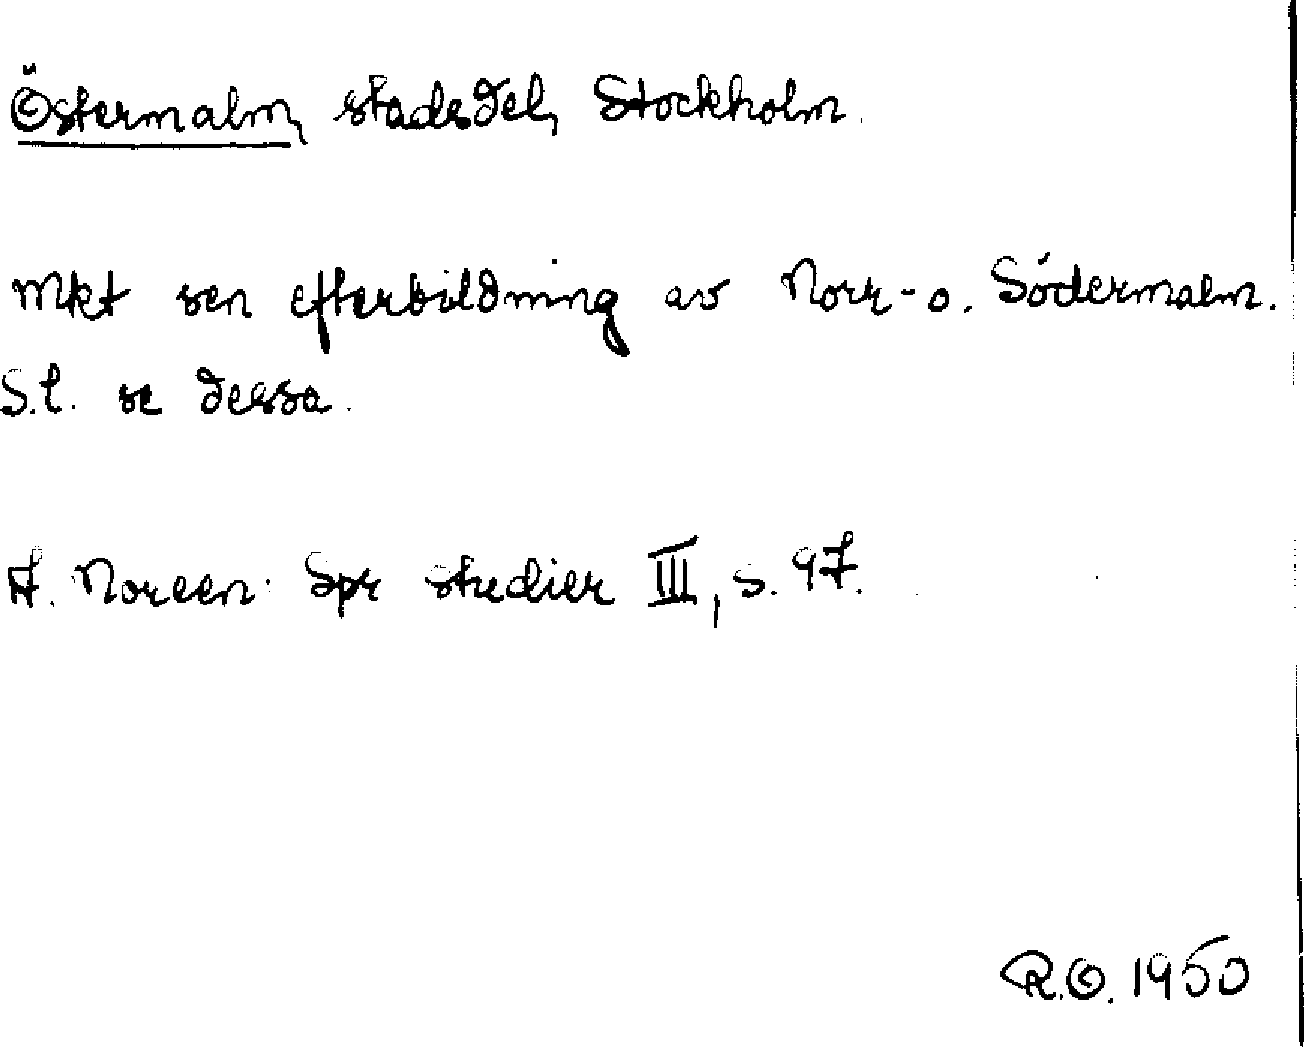 Östermalm, stadsdel, Stockholm.
Mkt sen efterbildning av Norr- o. Södermalm.
S.l. se dessa.
A. Noreen: Spr studier III, s. 97.
R.O. 1950